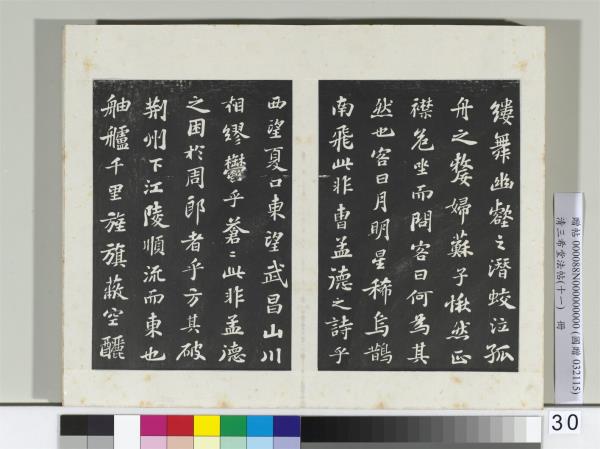 縷舞幽壑之潛蛟泣孤
舟之嫠婦蘇子愀然正
襟危坐而問客曰何為其
然也客曰月明星稀烏鵲
南飛此非曹孟德之詩乎
西望夏口東望武昌山川
相繆鬱乎蒼〻此非孟德
之困於周郎者乎方其破
荆州下江陵順流而東也
舳艫千里旌旗蔽空釃
贈帖 000088N000000000 (國贈 032115)
清三希堂法帖(十一) 冊
30